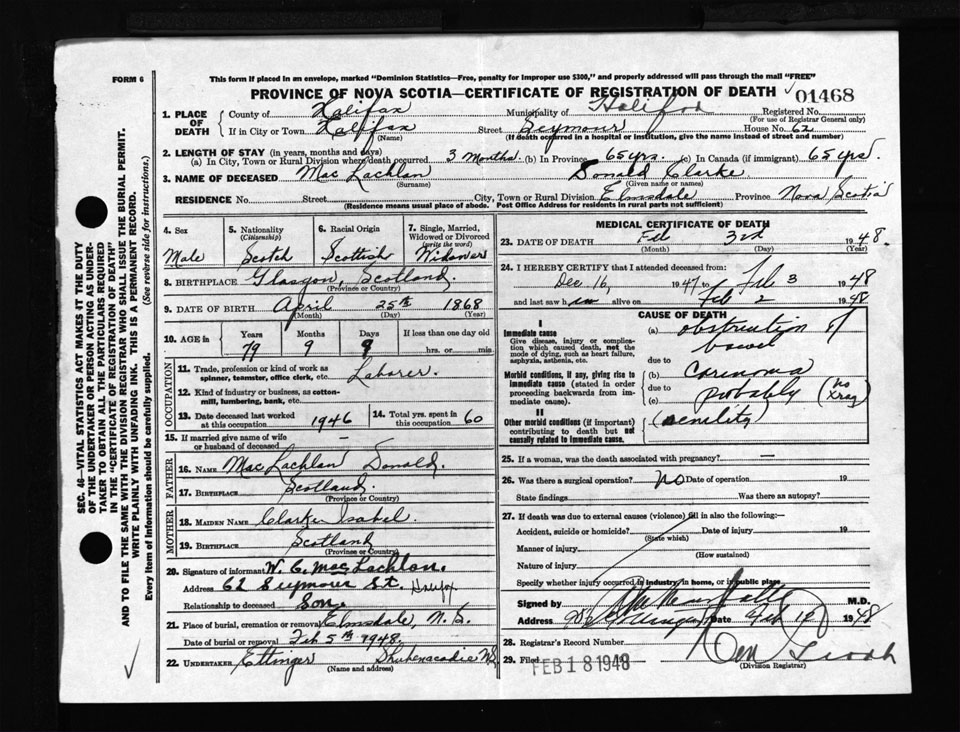 FORM 6
This form if placed in an envelope, marked "Dominion Statistics—Free, penalty for improper use $300," and properly addressed will pass through the mail "FREE"
PROVINCE OF NOVA SCOTIA—CERTIFICATE OF REGISTRATION OF DEATH
01468
1. PLACE OF DEATH
County of Halifax Municipality of Registered No.
(For use of Registrar General only)
If in City or Town Halifax Street Seymour House No. 62
(Name) (If death occurred in a hospital or institution, give the name instead of street and number)
2. LENGTH OF STAY (in years, months and days)
(a) In City, Town or Rural Division where death occurred 3 Months. (b) In Province 65 yrs. (c) In Canada (if immigrant) 65 yrs.
3. NAME OF DECEASED Mac Lachlan Donald Clarke
(Surname) (Given name or names)
RESIDENCE No. Street City, Town or Rural Division Elmsdale Province Nova Scotia
(Residence means usual place of abode. Post Office Address for residents in rural parts not sufficient)
4. Sex
Male
5. Nationality
(Citizenship)
Scotch
6. Racial Origin
Scottish
7. Single, Married, Widowed or Divorced
(write the word)
Widower
8. BIRTHPLACE Glasgow, Scotland
(Province or Country)
9. DATE OF BIRTH April 25th 1868
(Month) (Day) (Year)
10. AGE in Years Months Days If less than one day old
79 9 9 hrs. or min.
OCCUPATION
11. Trade, profession or kind of work as spinner, teamster, office clerk, etc. Laborer.
12. Kind of industry or business, as cotton-mill, lumbering, bank, etc.
13. Date deceased last worked at this occupation 1946
14. Total yrs. spent in this occupation 60
15. If married give name of wife or husband of deceased —
FATHER
16. NAME Mac Lachlan Donald.
17. BIRTHPLACE Scotland.
(Province or Country)
MOTHER
18. MAIDEN NAME Clarke Isabel.
19. BIRTHPLACE Scotland
(Province or Country)
20. Signature of informant W. C. MacLachlan.
Address 62 Seymour St. Halifax
Relationship to deceased Son.
21. Place of burial, cremation or removal Elmsdale, N.S.
Date of burial or removal Feb 5th 1948.
22. UNDERTAKER Ettinger Shubenacadie N.S.
(Name and address)
MEDICAL CERTIFICATE OF DEATH
23. DATE OF DEATH Feb 3rd 1948.
(Month) (Day) (Year)
24. I HEREBY CERTIFY that I attended deceased from:
Dec 16, 1947 to Feb 3 1948
and last saw him alive on Feb 2 1948
CAUSE OF DEATH
I
Immediate cause
Give disease, injury or complication which caused death, not the mode of dying, such as heart failure, asphyxia, asthenia, etc.
(a) obstruction of bowel
due to
Morbid conditions, if any, giving rise to immediate cause (stated in order proceeding backwards from immediate cause).
(b) Carinoma
due to
(c) probably (no Xray)
II
Other morbid conditions (if important) contributing to death but not causally related to immediate cause.
(senility)
25. If a woman, was the death associated with pregnancy? —
26. Was there a surgical operation? No Date of operation 19
State findings Was there an autopsy?
27. If death was due to external causes (violence) fill in also the following:—
Accident, suicide or homicide? Date of injury 19
(State which)
Manner of injury
(How sustained)
Nature of injury
Specify whether injury occurred in industry, in home, or in public place
Signed by M.D.
Address Date Feb 14 1948
28. Registrar's Record Number
29. Filed FEB 18 1948
(Division Registrar)
SEC. 46—VITAL STATISTICS ACT MAKES IT THE DUTY OF THE UNDERTAKER OR PERSON ACTING AS UNDERTAKER TO OBTAIN ALL THE PARTICULARS REQUIRED IN THE "CERTIFICATE OF REGISTRATION OF DEATH"
AND TO FILE THE SAME WITH THE DIVISION REGISTRAR WHO SHALL ISSUE THE BURIAL PERMIT.
WRITE PLAINLY WITH UNFADING INK. THIS IS A PERMANENT RECORD.
Every item of Information should be carefully supplied. (See reverse side for instructions.)